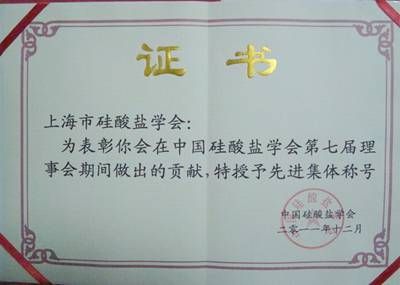 证书
上海市硅酸盐学会:
为表彰你会在中国硅酸盐学会第七届理
事会期间做出的贡献,特授予先进集体称号
中国硅酸盐学会
二〇一一年十二月